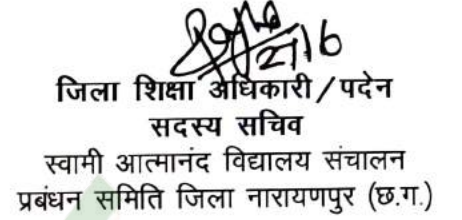 21/6
जिला शिक्षा अधिकारी/पदेन
सदस्य सचिव
स्वामी आत्मानंद विद्यालय संचालन
प्रबंधन समिति जिला नारायणपुर (छ.ग.)